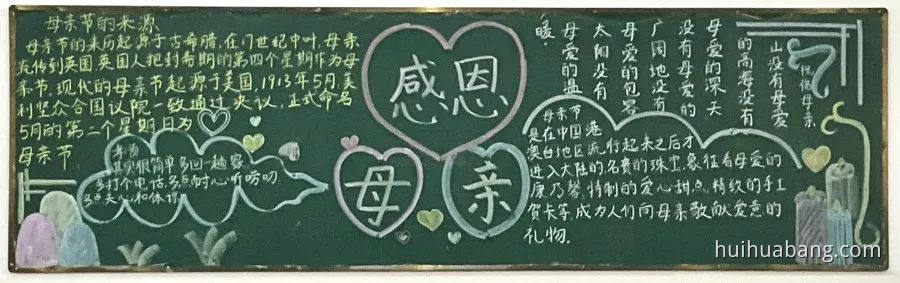 母亲节的来源
母亲节的来历起源于古希腊,在17世纪中叶,母亲
流传到英国,英国人把封希期的第四个星期作为母
亲节.现代的母亲节起源于美国,1913年5月,美
利坚众合国议院一致通过决议,正式命名
5月的第二个星期日为
母亲节
孝顺
其实很简单多回一趟家
多打个电话.多点耐心听唠叨
多点关心和体谅
感恩
母亲
山没有母爱
的高海没有
母爱的深天
没有母爱的
广阔地没有
母爱的包容
太阳没有
母爱的温
暖.
祝福母亲
母亲节
是在中国港
澳台地区流行起来之后才
进入大陆的.名贵的珠宝,象征着母爱的
康乃馨,特制的爱心甜点,精致的手工
贺卡等,成为人们向母亲敬献爱意的
礼物.
huihuabang.com